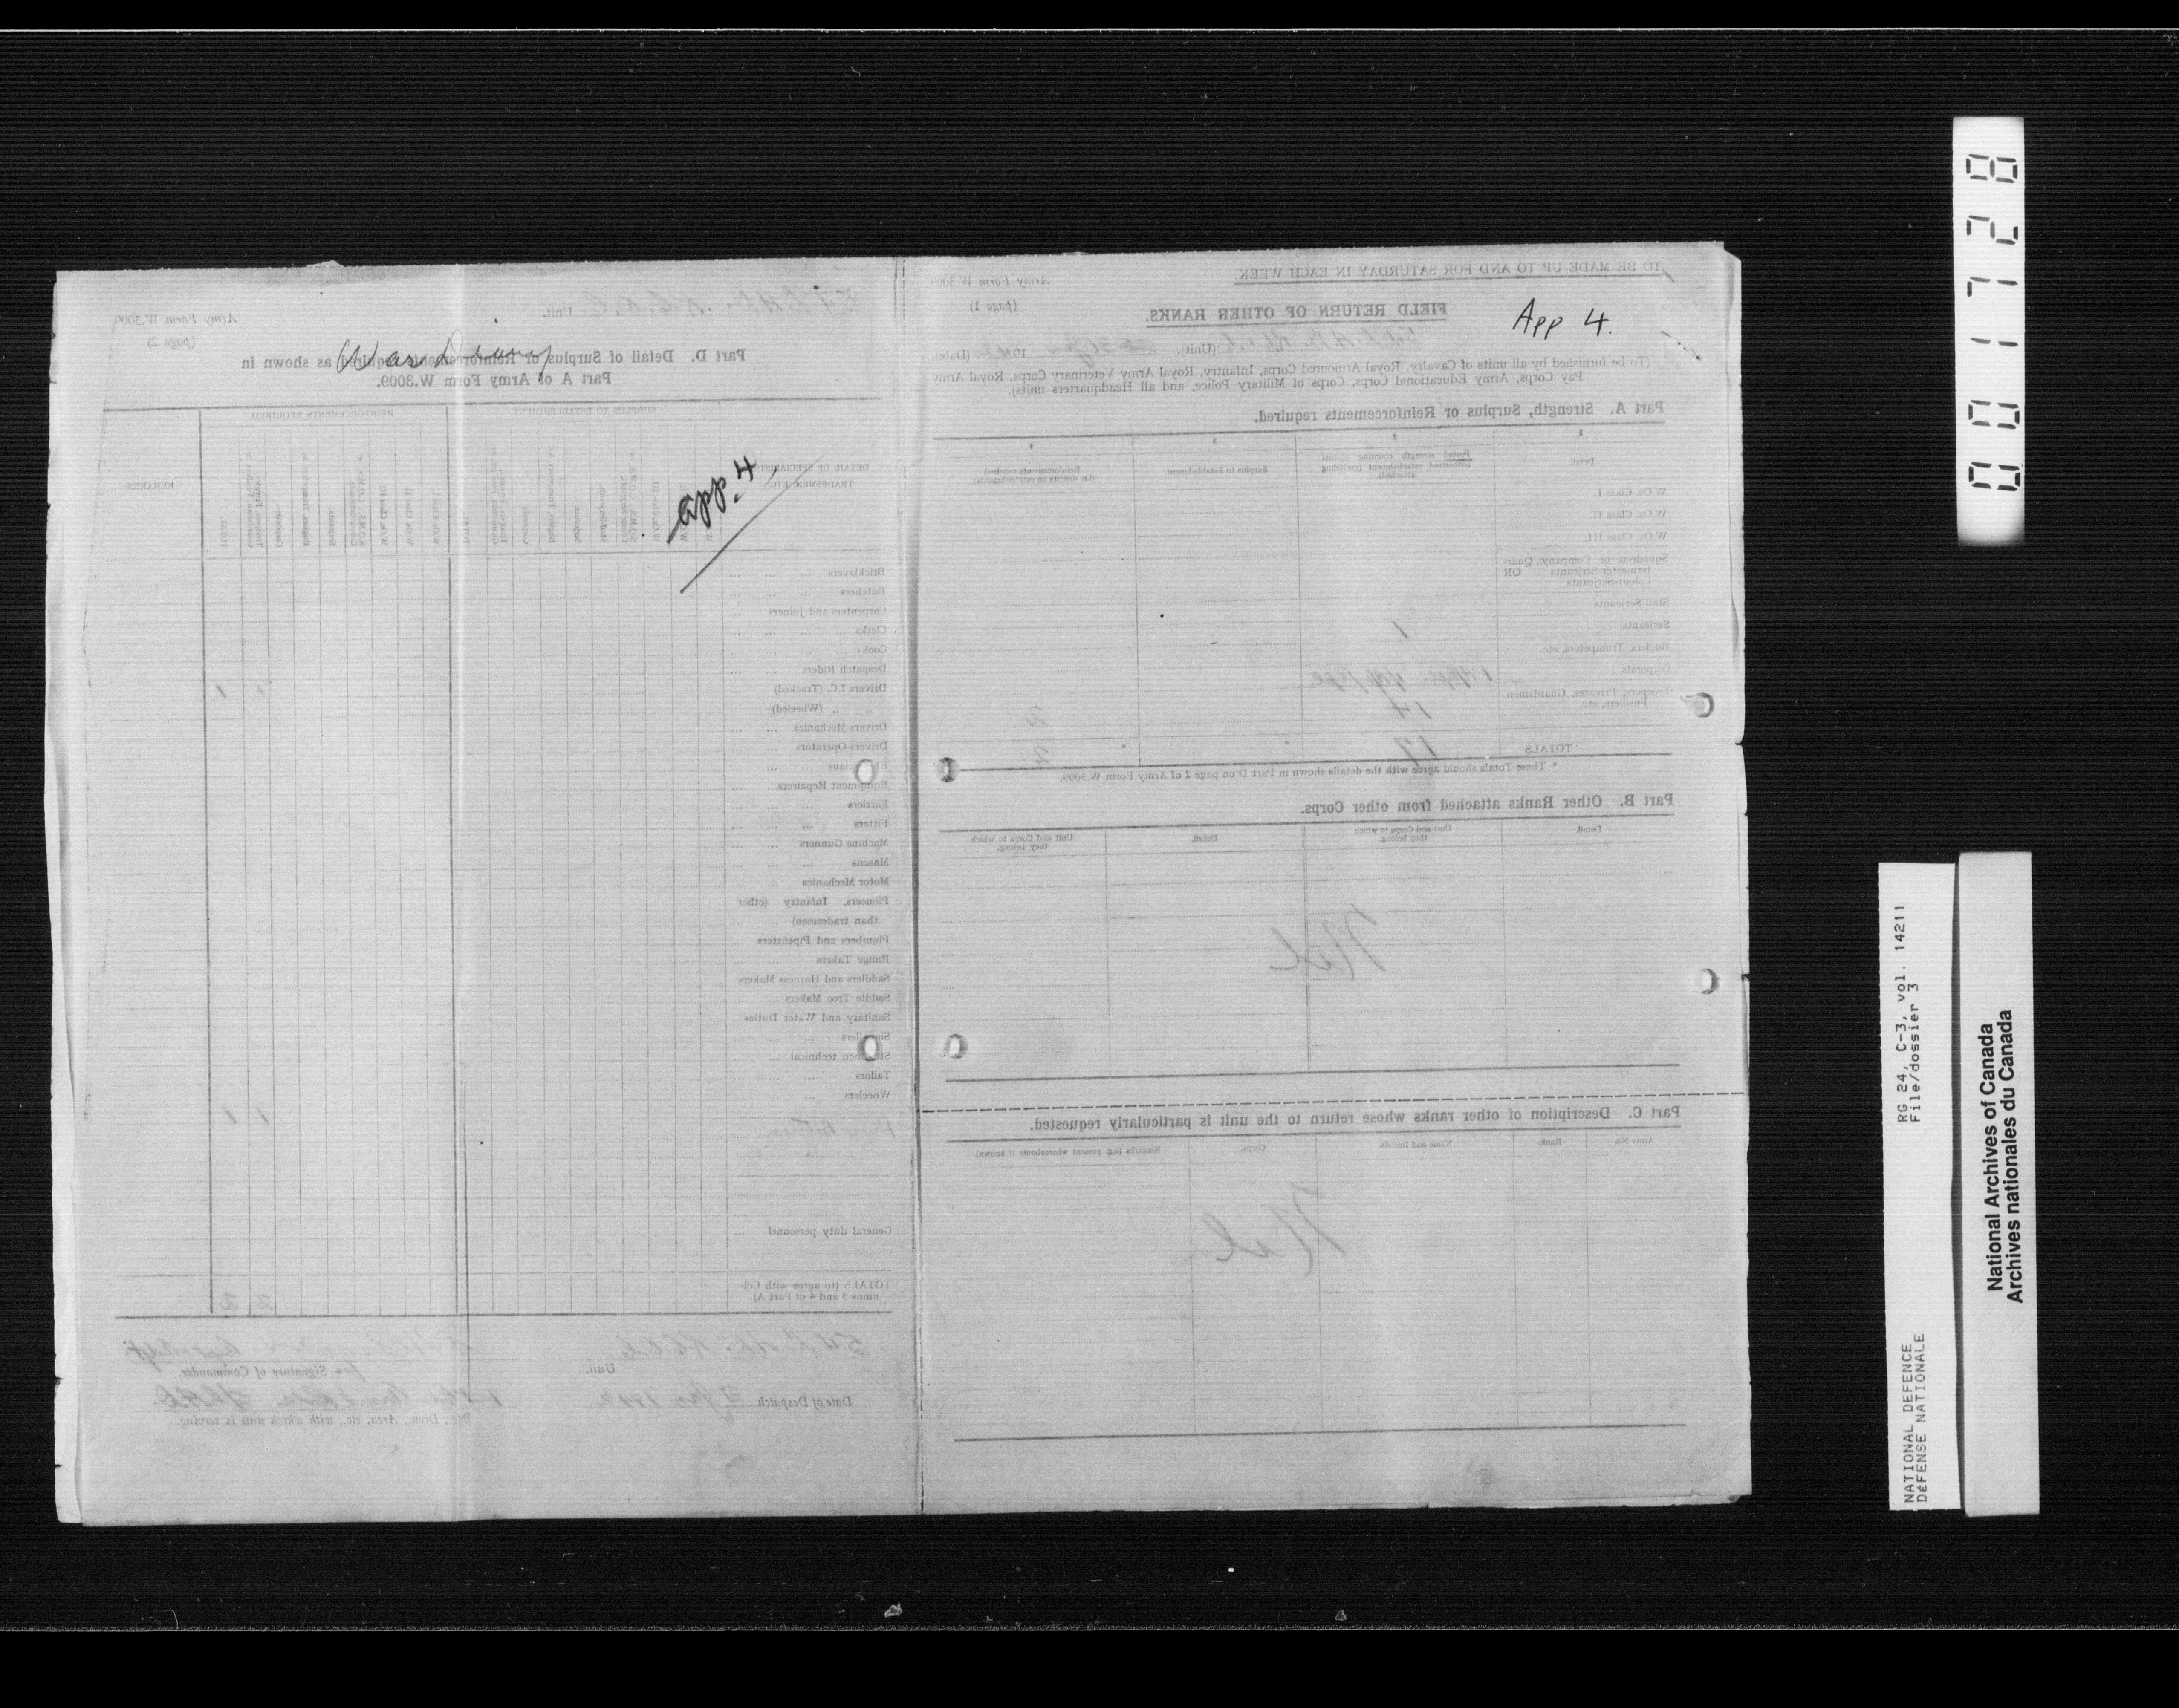 Army Form W.3009
(page 2)
Unit.
War Diary
Part D. Detail of Surplus or Reinforcements required as shown in
Part A of Army Form W.3009.
SURPLUS TO ESTABLISHMENT
REINFORCEMENTS REQUIRED
DETAIL OF SPECIALISTS,
TRADESMEN, ETC.
REMARKS
app. 4
Bricklayers
Butchers
Carpenters and Joiners
Clerks
Cooks
Despatch Riders
Drivers I.C. (Tracked) 1 1
,, ,, (Wheeled)
Drivers-Mechanics
Drivers-Operators
Equipment Repairers
Farriers
Fitters
Machine Gunners
Masons
Motor Mechanics
Pioneers, Infantry (other
than tradesmen)
Plumbers and Pipefitters
Range Takers
Saddlers and Harness Makers
Saddle Tree Makers
Sanitary and Water Duties
technical
Tailors
Wheelers
1 1
General duty personnel
TOTALS (to agree with Col-
umns 3 and 4 of Part A)
2 2
Unit.
for Signature of Commander.
Date of Despatch Jan 1942
Bde., Divn., Area, etc., with which unit is serving.
TO BE MADE UP TO AND FOR SATURDAY IN EACH WEEK.
Army Form W.3009
(page 1)
FIELD RETURN OF OTHER RANKS.
App 4.
(Unit). (Date)
(To be furnished by all units of Cavalry, Royal Armoured Corps, Infantry, Royal Army Veterinary Corps, Royal Army
Pay Corps, Army Educational Corps, Corps of Military Police, and all Headquarters units).
Part A. Strength, Surplus or Reinforcements required.
1 2 3 4
Detail
Posted strength counting against
authorised establishment (excluding
attached).
Surplus to Establishment.
Reinforcements required
(i.e. deficits on establishments).
W.Os. Class I.
W.Os. Class II.
W.Os. Class III.
Squadron or Company Quar-
termaster-Serjeants OR
Colour-Serjeants
Staff-Serjeants
Serjeants 1
Buglers, Trumpeters, etc.
Corporals
Troopers, Privates, Guardsmen,
Fusiliers, etc. 14 2
TOTALS 17 2
* These Totals should agree with the details shown in Part D on page 2 of Army Form W.3009.
Part B. Other Ranks attached from other Corps.
Detail. Unit and Corps to which
they belong. Detail. Unit and Corps to which
they belong.
Nil
Part C. Description of other ranks whose return to the unit is particularly requested.
Army No. Rank. Name and Initials. Corps. Remarks (e.g. present whereabouts if known).
Nil
001728
RG 24, C-3, vol. 14211
File/dossier 3
NATIONAL DEFENCE
DÉFENSE NATIONALE
National Archives of Canada
Archives nationales du Canada